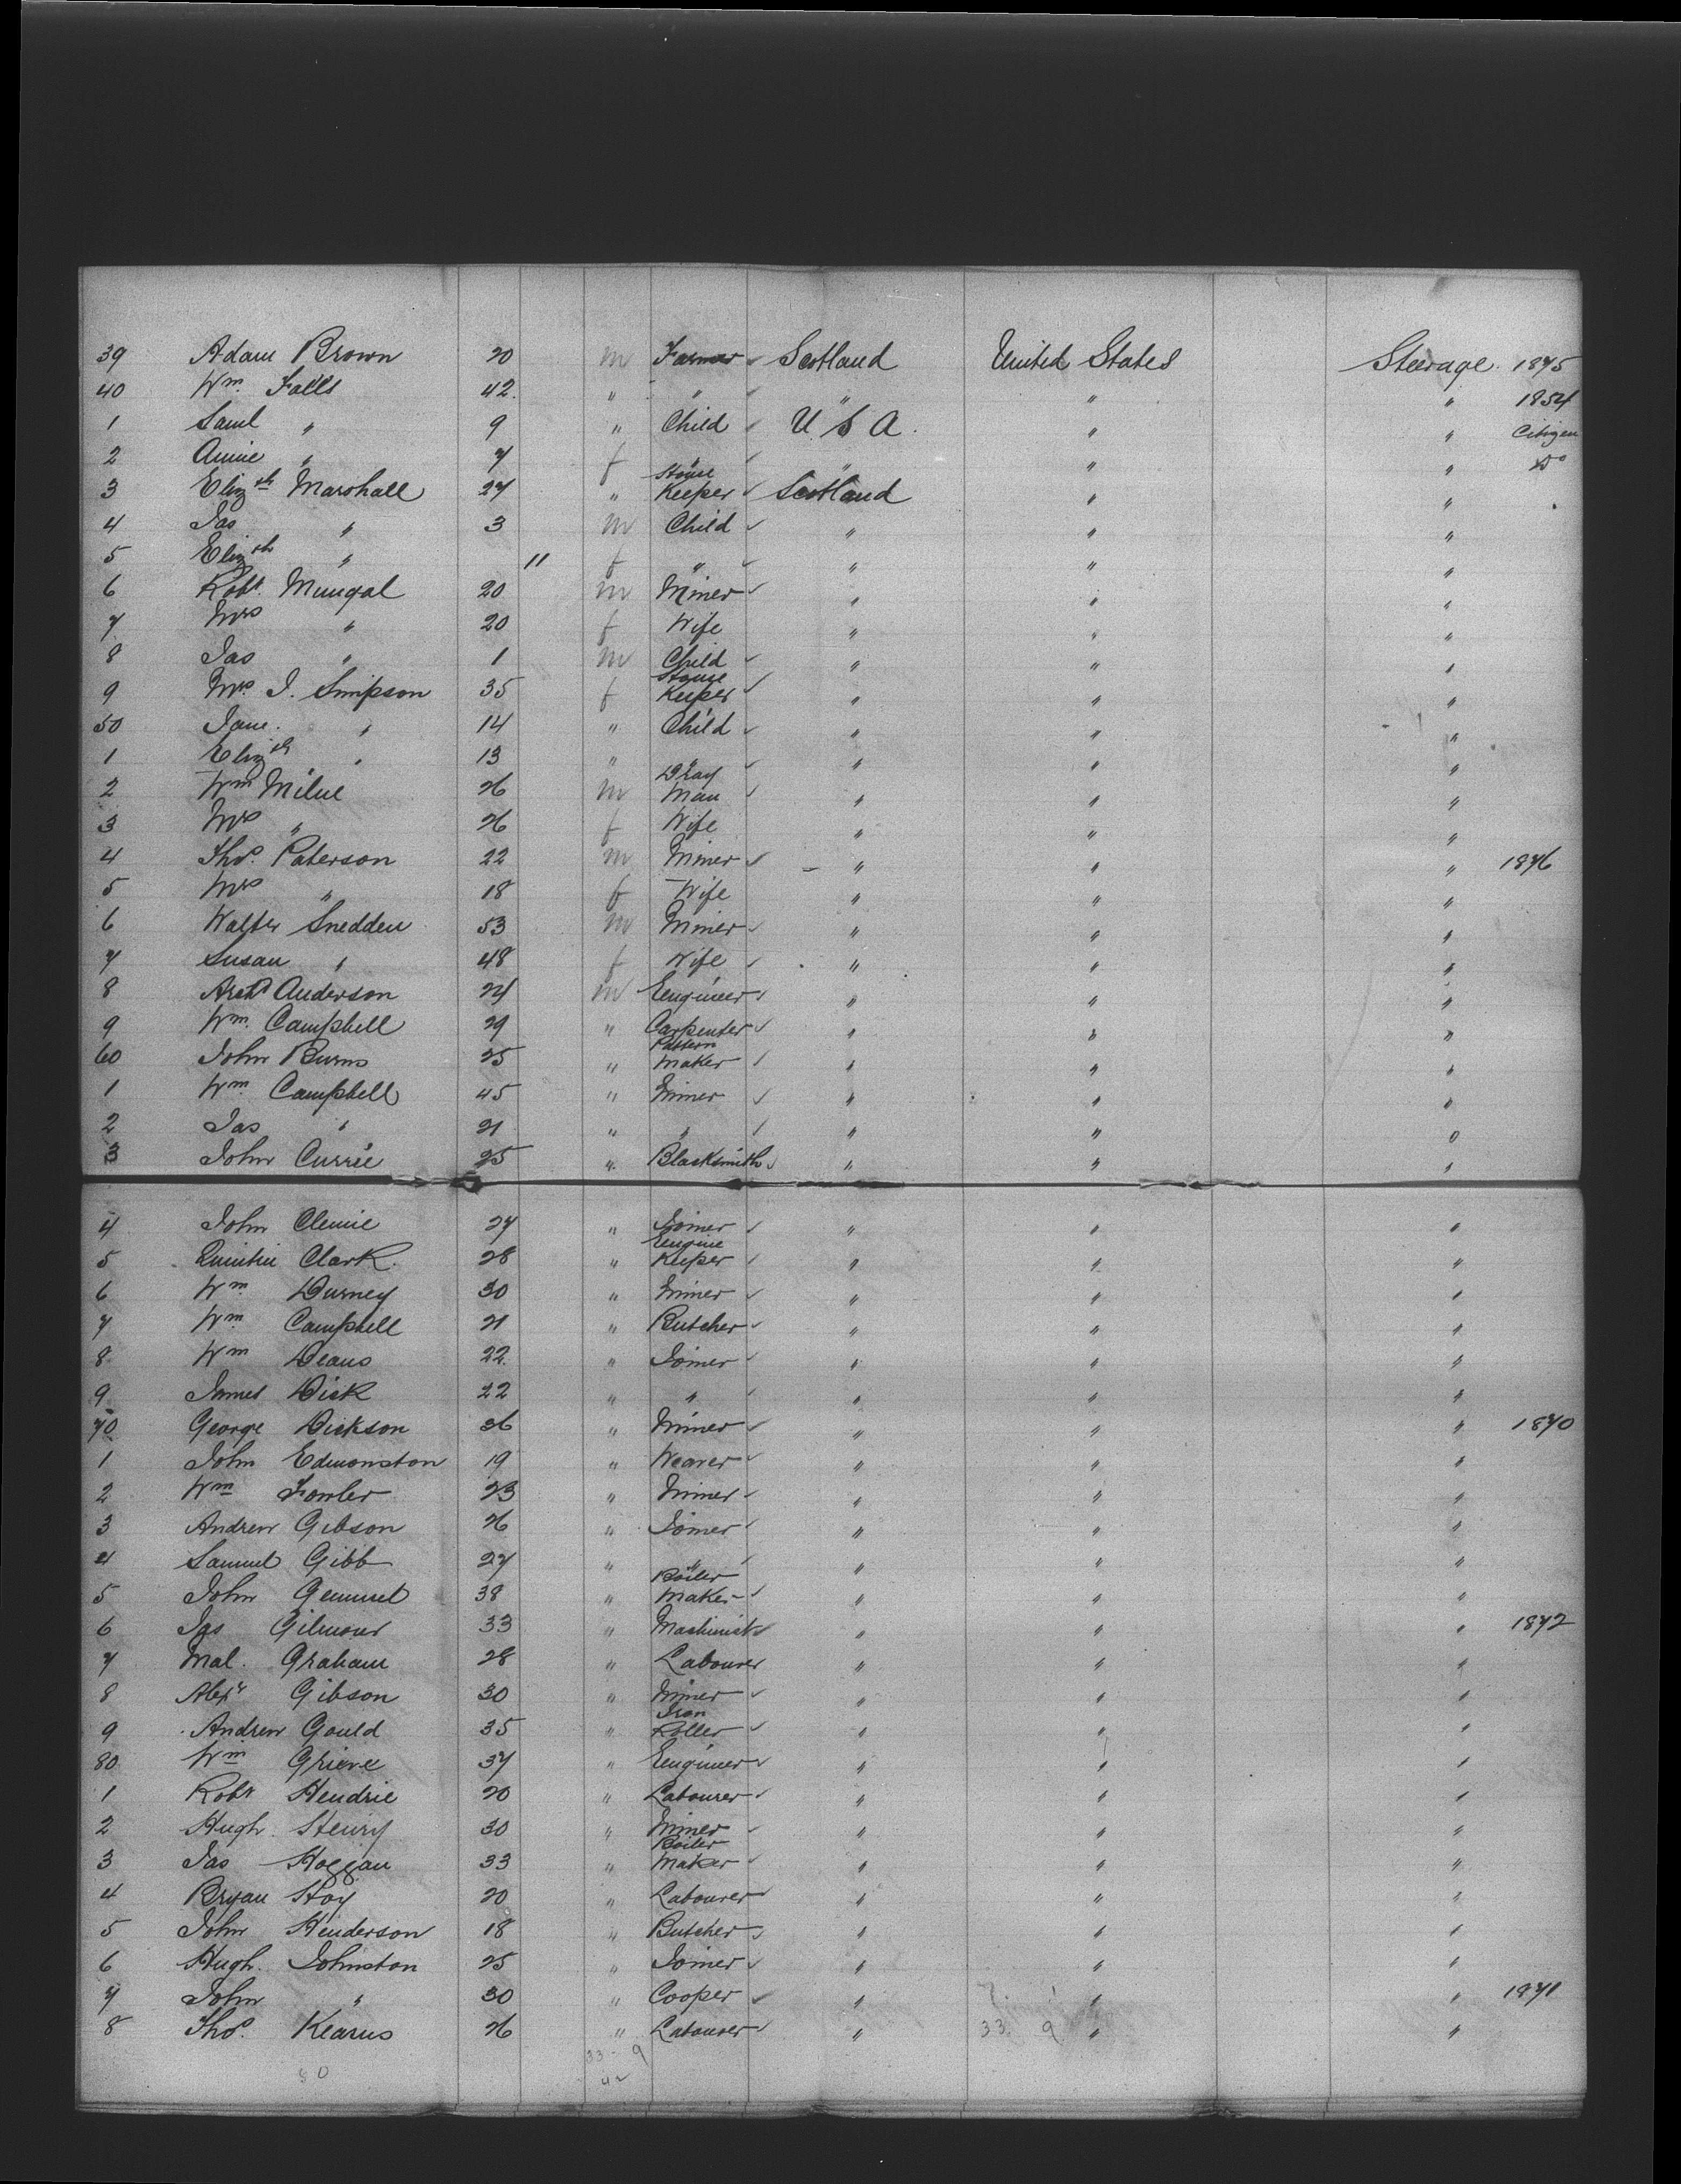 39 Adam Brown 20 m Farmer Scotland United States Steerage 1875
40 Wm Falls 42 " " " " " 1854
1 Saml " 9 " Child U S A. " " Citizen
2 Annie " 7 f " " " " Do
3 Elizth Marshall 27 " House Keeper Scotland " "
4 Jas " 3 m Child " " "
5 Elizth " 11 f " " " "
6 Robt Mungal 20 m Miner " " "
7 Mrs " 20 f Wife " " "
8 Jas " 1 m Child " " "
9 Mrs J. Simpson 35 f House Keeper " " "
50 Jane " 14 " Child " " "
1 Elizth " 13 " " " " "
2 Wm Milne 26 m Dray Man " " "
3 Mrs " 26 f Wife " " "
4 Thos. Paterson 22 m Miner " " " 1876
5 Mrs " 18 f Wife " " "
6 Walter Snedden 53 m Miner " " "
7 Susan " 48 f Wife " " "
8 Archd Anderson 24 m Engineer " " "
9 Wm. Campbell 29 " Carpenter " " "
60 John Burns 25 " Pattern Maker " " "
1 Wm Campbell 45 " Miner " " "
2 Jas " 21 " " " " "
3 John Currie 25 " Blacksmith " " "
4 John Clemie 27 " Joiner " " "
5 Quintin Clark 28 " Engine Keeper " " "
6 Wm Durney 30 " Miner " " "
7 Wm Campbell 21 " Butcher " " "
8 Wm Deans 22 " Joiner " " "
9 James Dick 22 " " " " "
70 George Dickson 36 " Miner " " " 1870
1 John Edmonston 19 " Weaver " " "
2 Wm Fowler 23 " Miner " " "
3 Andrew Gibson 26 " Joiner " " "
4 Samuel Gibb 27 " " " " "
5 John Gemmel 38 " Boiler Maker " " "
6 Jas Gilmour 33 " Machinist " " " 1872
7 Mal. Graham 28 " Labourer " " "
8 Alexr Gibson 30 " Miner " " "
9 Andrew Gould 35 " Iron Roller " " "
80 Wm Grieve 37 " Engineer " " "
1 Robt Hendrie 20 " Labourer " " "
2 Hugh Henry 30 " Miner " " "
3 Jas Hoggan 33 " Boiler Maker " " "
4 Bryan Hoy 20 " Labourer " " "
5 John Henderson 18 " Butcher " " "
6 Hugh Johnston 25 " Joiner " " "
7 John " 30 " Cooper " " " 1871
8 Thos. Kearns 26 " Labourer " 33 9 " "
33 - 9